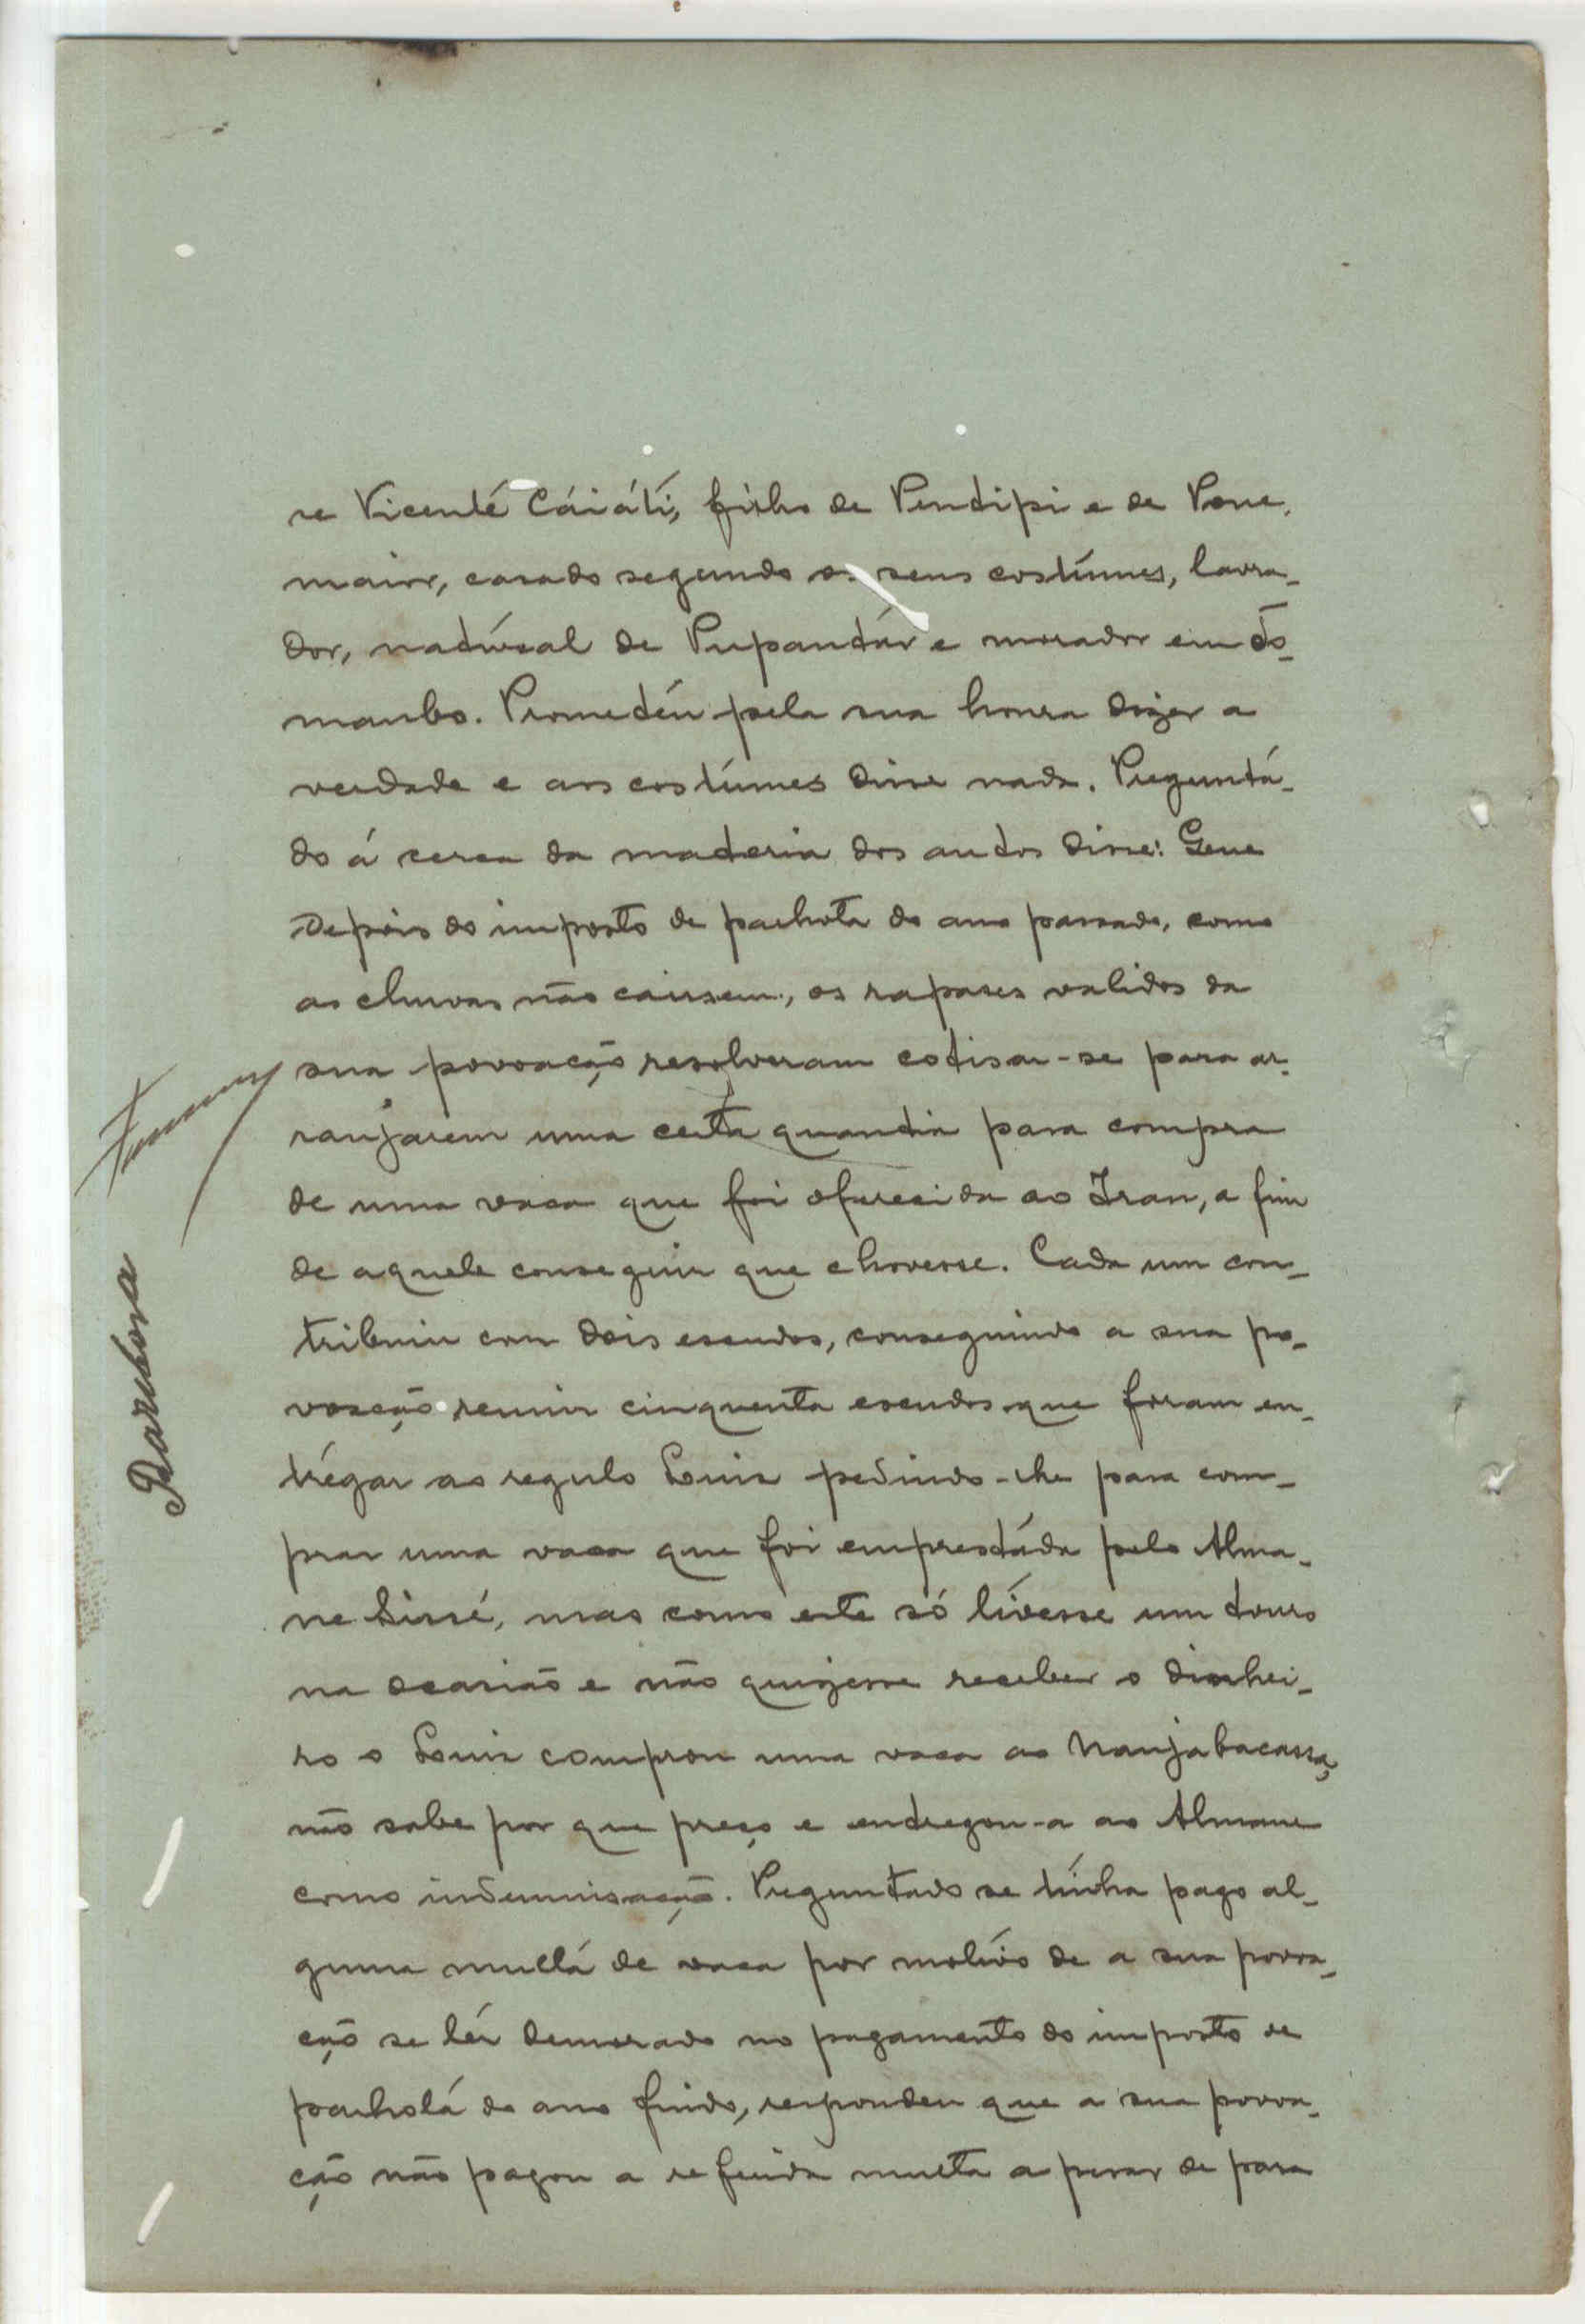 se Vicente Cáiáti, filho de Pendipi e de Pone,
maior, casado segundo os seus costumes, lavra-
dor, natural de Pupantár e morador em
Prometeu pela sua honra dizer a
verdade e aos costumes disse nada. Pregunta-
do á cerca da materia dos autos disse: Que
depois do imposto de palhota do ano passado, como
as chuvas não caissem, os rapases validos da
sua povoação resolveram cotisar-se para ar-
ranjarem uma certa quantia para compra
de uma vaca que foi oferecida ao Iran, a fim
de aquele conseguir que chovesse. Cada um con-
tribuiu com dois escudos, conseguindo a sua po-
voação reunir cinquenta escudos que foram en-
tregar ao regulo Luis pedindo-lhe para com-
prar uma vaca que foi emprestáda pelo Alma-
ne Sissé, mas como este só tivesse um touro
na ocasião e não quizesse receber o dinhei-
ro o Luis comprou uma vaca ao Nanjabacassa,
não sabe por que preço e entregou-a ao Almane
como indemnisação. Preguntado se tinha pago al-
guma multa de vaca por motivo de a sua povoa-
ção se ter demorado no pagamento do imposto de
palhota do ano findo, respondeu que a sua povoa-
ção não pagou a referida multa apesar de para
Barbosa